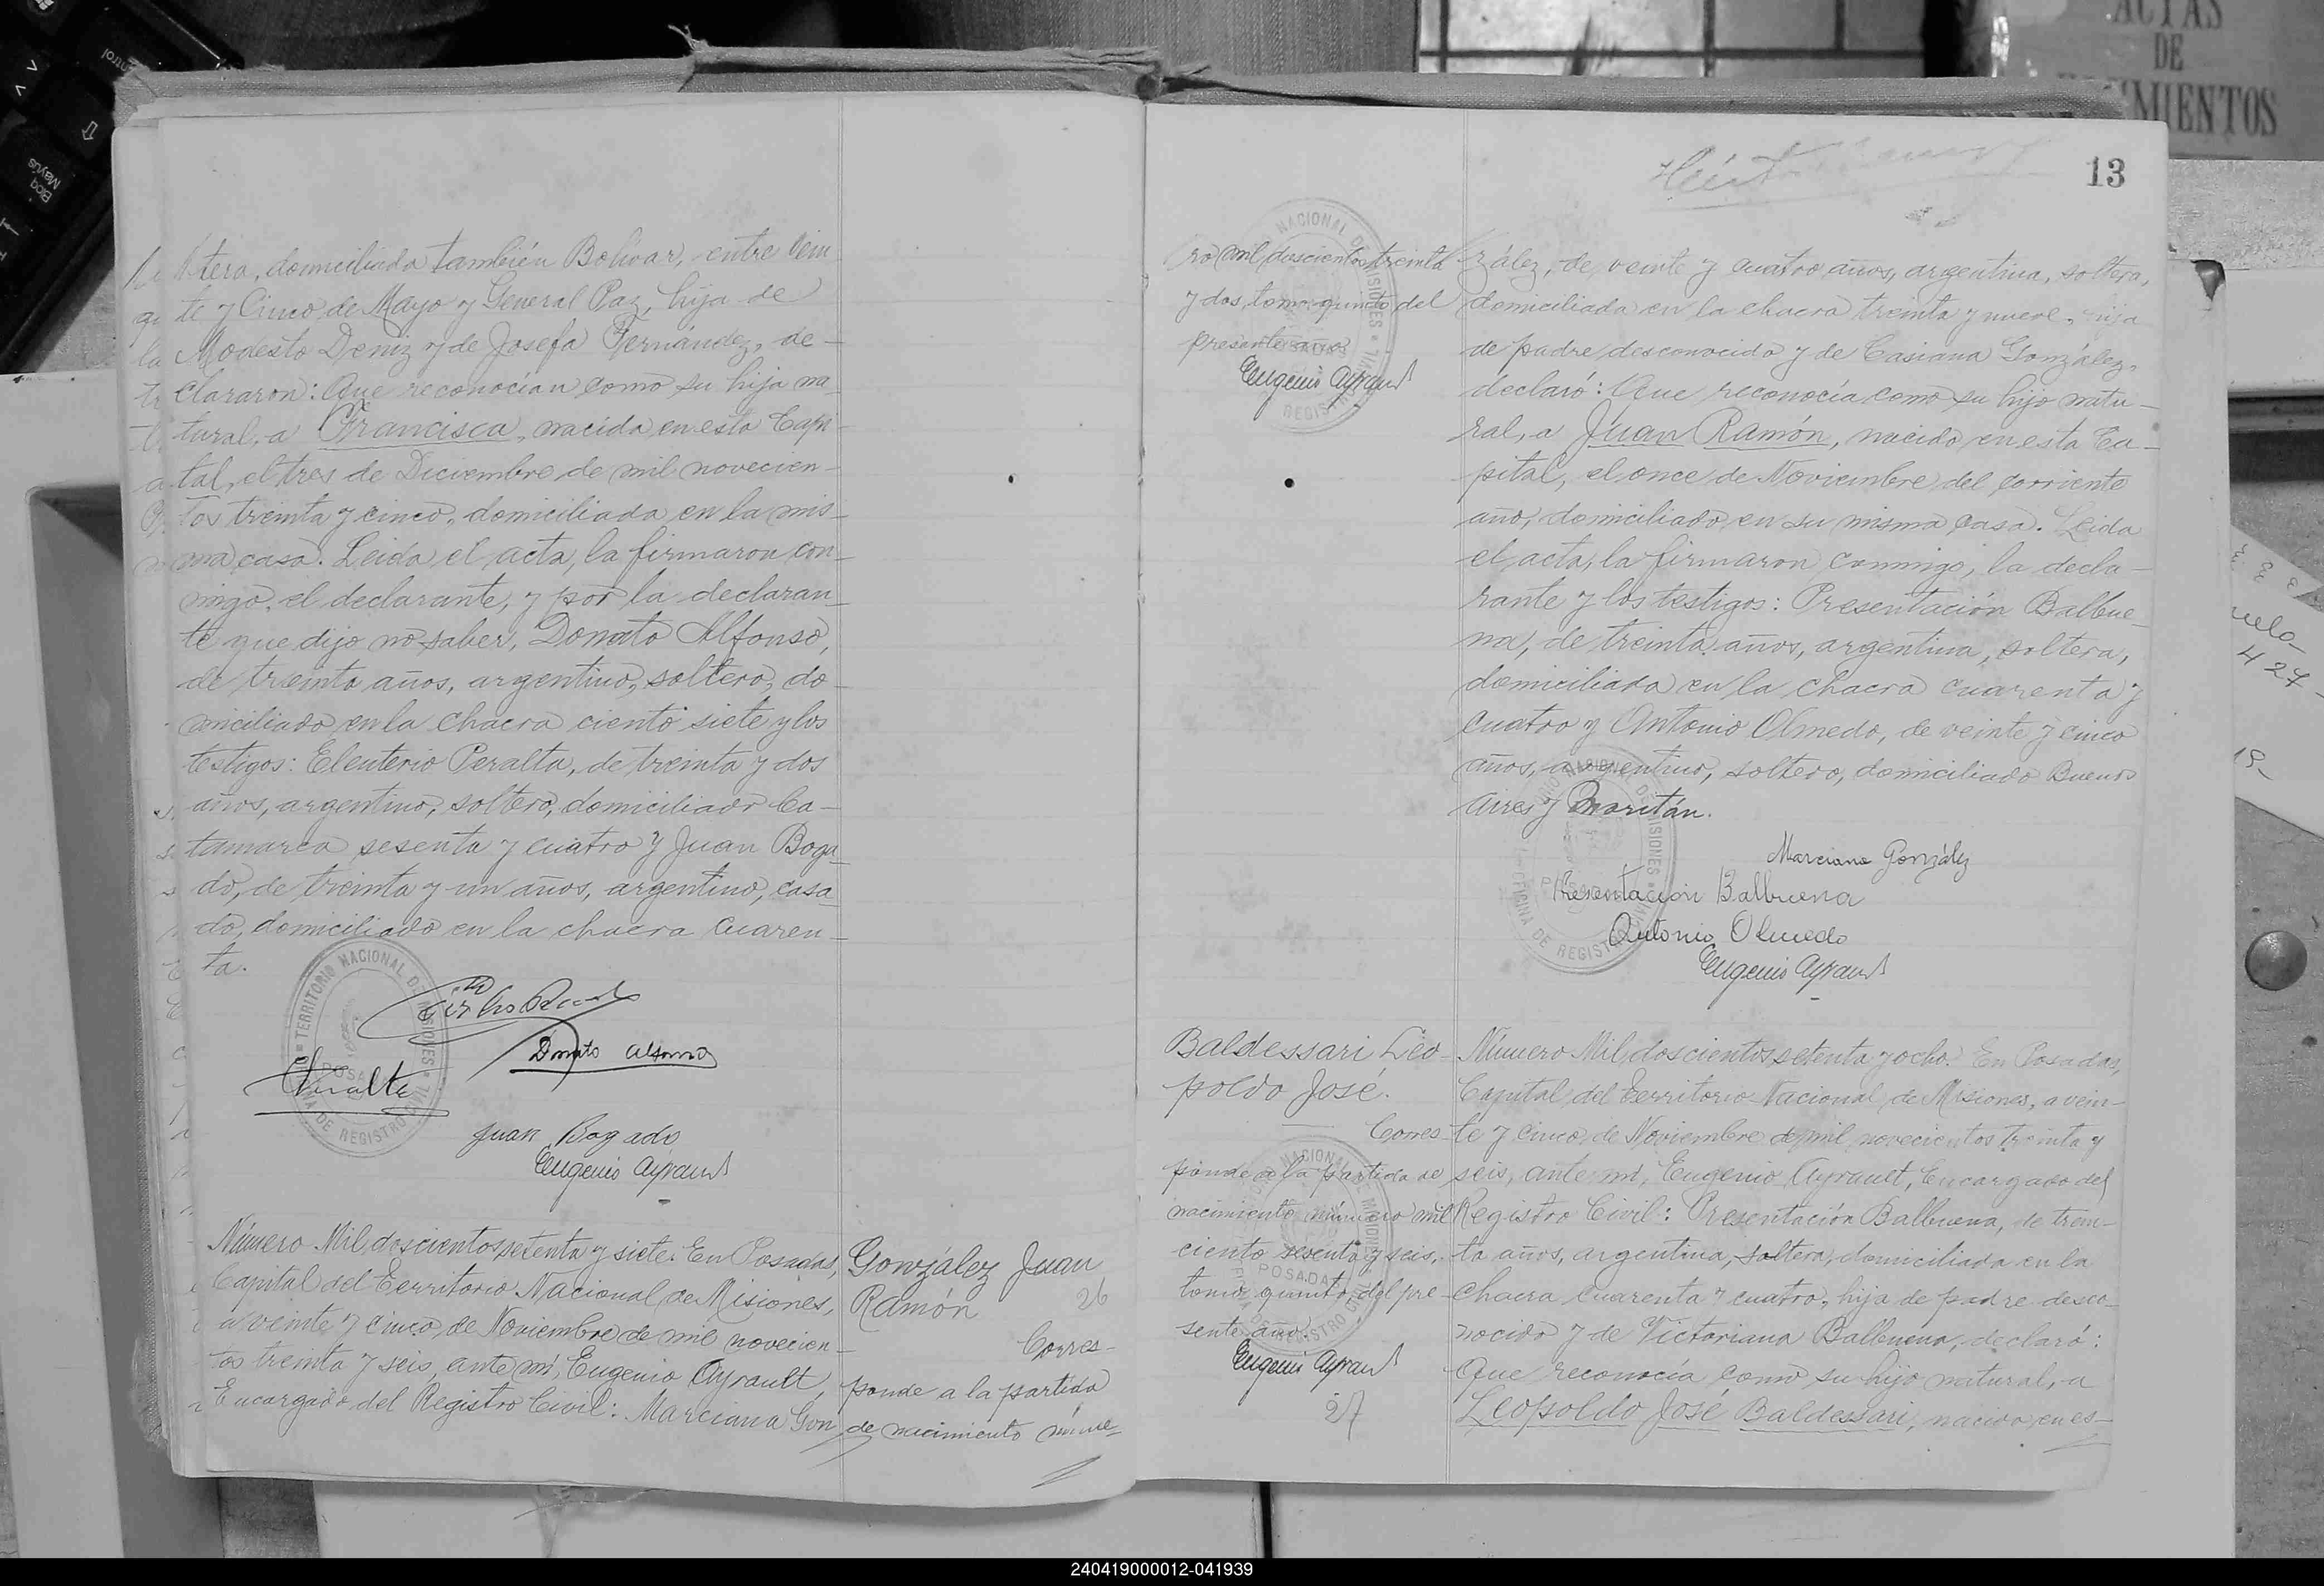 ltera, domiciliada también Bolivar, entre Vein
te y Cinco de Mayo y General Paz, hija de
Modesto Deniz y de Josefa Fernández, de-
clararon: Que reconocían como su hija na-
tural, a Francisca, nacida en esta Capi-
tal, el tres de Diciembre de mil novecien-
tos treinta y cinco, domiciliada en la mis-
ma casa. Leida el acta, la firmaron con-
migo, el declarante, y por la declaran-
te que dijo no saber, Donato Alfonso,
de treinta años, argentino, soltero, do-
miciliado en la chacra ciento siete y los
testigos: Eleuterio Peralta, de treinta y dos
años, argentino, soltero, domiciliado Ca-
tamarca sesenta y cuatro y Juan Boga-
do, de treinta y un años, argentino, casa-
do, domiciliado en la chacra cuaren-
ta.
TERRITORIO NACIONAL DE MISIONES
POSADAS
Donato Alfonso
Peralta
Juan Bogado
Eugenio Ayrault
Número Mil doscientos setenta y siete. En Posadas,
Capital del Territorio Nacional de Misiones,
a veinte y cinco de Noviembre de mil novecien-
tos treinta y seis, ante mí, Eugenio Ayrault,
Encargado del Registro Civil: Marciana Gon
González Juan
Ramón
26
Corres-
ponde a la partida
de nacimiento núme-
13
ro mil doscientos treinta
y dos, tomo quinto del
presente año.
Eugenio Ayrault
zález, de veinte y cuatro años, argentina, soltera,
domiciliada en la chacra treinta y nueve, hija
de padre desconocido y de Casiana González,
declaró: Que reconocía como su hijo natu-
ral, a Juan Ramón, nacido en esta Ca-
pital, el once de Noviembre del corriente
año, domiciliado en su misma casa. Leida
el acta, la firmaron conmigo, la decla-
rante y los testigos: Presentación Balbue-
na, de treinta años, argentina, soltera,
domiciliada en la chacra cuarenta y
cuatro y Antonio Olmedo, de veinte y cinco
años, argentino, soltero, domiciliado Buenos
Aires y
Marciana González
Presentación Balbuena
Antonio Olmedo
Eugenio Ayrault
Baldessari Leo-
poldo José.
Corres-
ponde a la partida de
nacimiento número mil
ciento sesenta y seis,
tomo quinto del pre-
sente año.
Eugenio Ayrault
27
Número Mil doscientos setenta y ocho. En Posadas,
Capital del Territorio Nacional de Misiones, a vein-
te y cinco de Noviembre de mil novecientos treinta y
seis, ante mí, Eugenio Ayrault, Encargado del
Registro Civil: Presentación Balbuena, de trein-
ta años, argentina, soltera, domiciliada en la
chacra cuarenta y cuatro, hija de padre desco-
nocido y de Victoriana Balbuena, declaró:
Que reconocía como su hijo natural, a
Leopoldo José Baldessari, nacido en es-
ACTAS
DE
MIENTOS
240419000012-041939